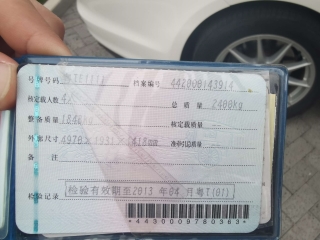 号牌号码 档案编号 442000143914
核定载人数 总质量 2400kg
整备质量 核定载质量
外廓尺寸 4970×1931×1418mm 准牵引总质量
备注
检验记录 检验有效期至2013年04月粤T(01)
*4430009780363*